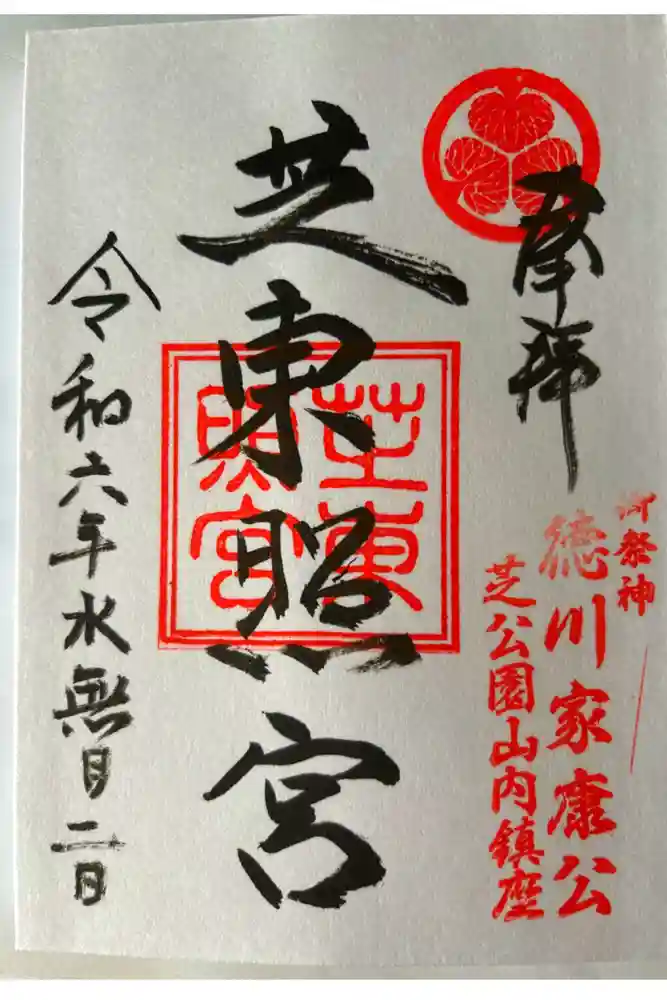 奉拝
御祭神
徳川家康公
芝公園山内鎮座
芝東照宮
芝東
照宮
令和六年水無月二日